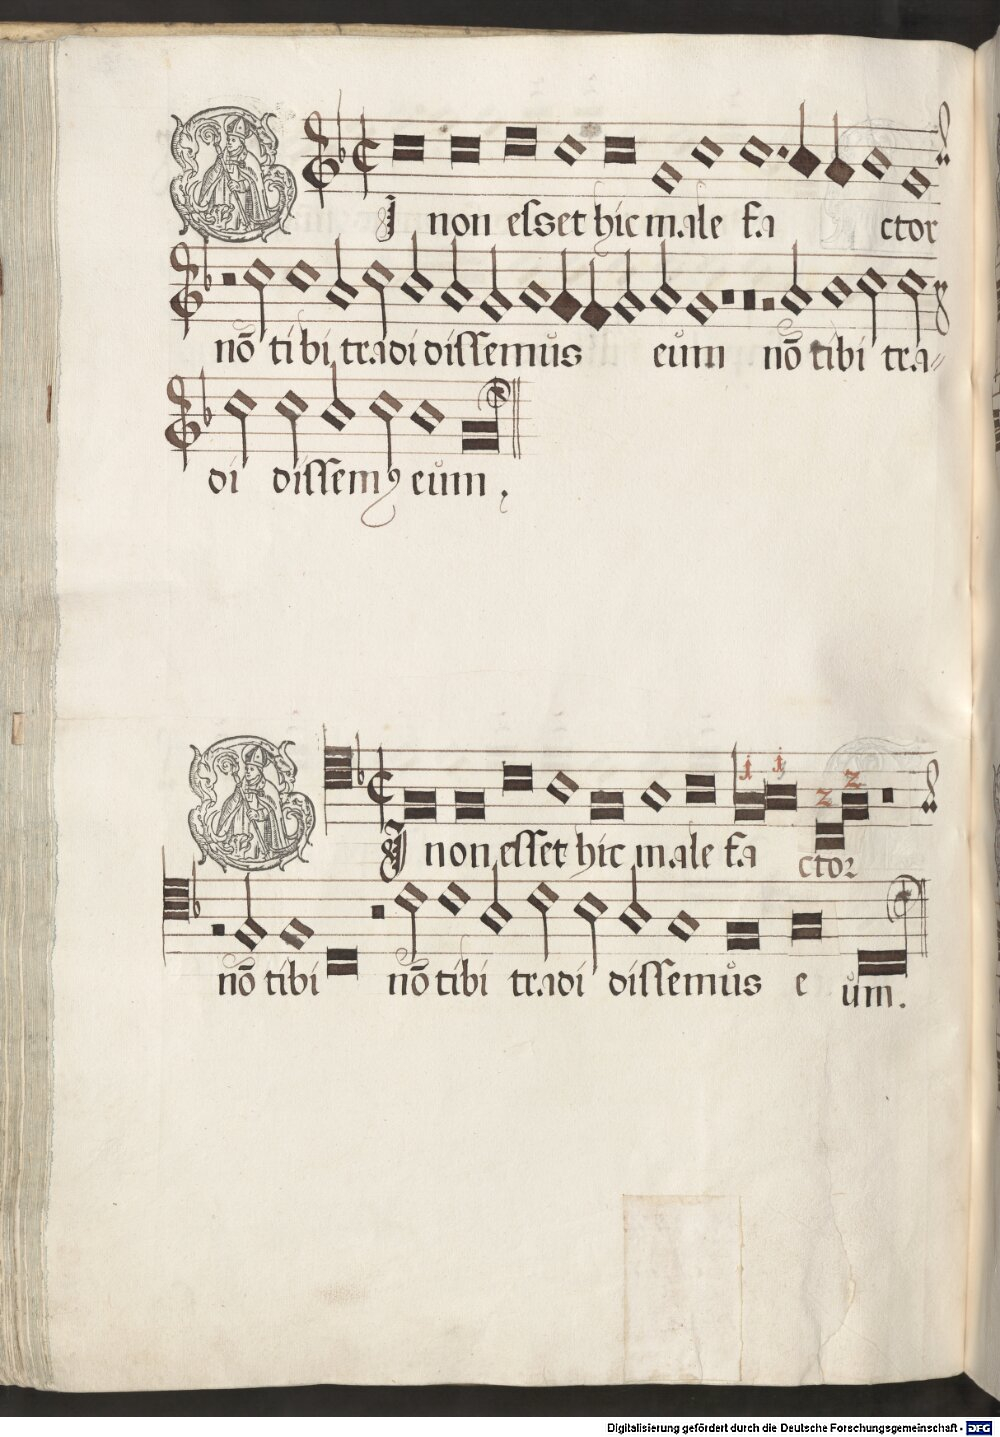 Si non esset hic male fa ctor
nō tibi tradidissemus eum nō tibi tra-
di dissemꝰ eum,
Si non esset hic male fa ctor
i i z z
nō tibi nō tibi tradi dissemus e um.
Digitalisierung gefördert durch die Deutsche Forschungsgemeinschaft - DFG